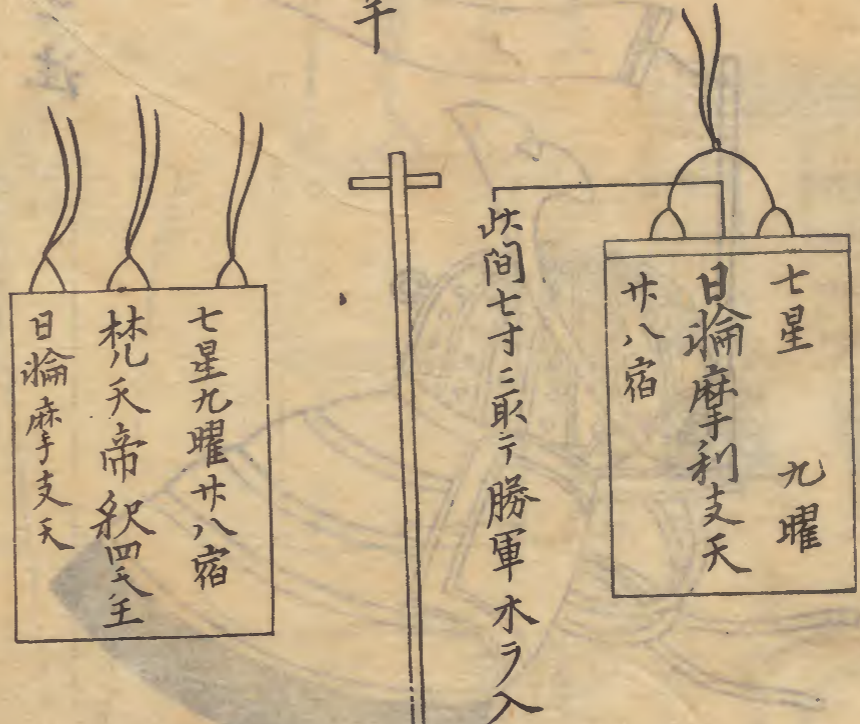 七星　九曜
日輪摩利支天
廿八宿
此間七寸ニ取テ勝軍木ヲ入
七星九曜廿八宿
梵天帝釈四天王
日輪摩支天